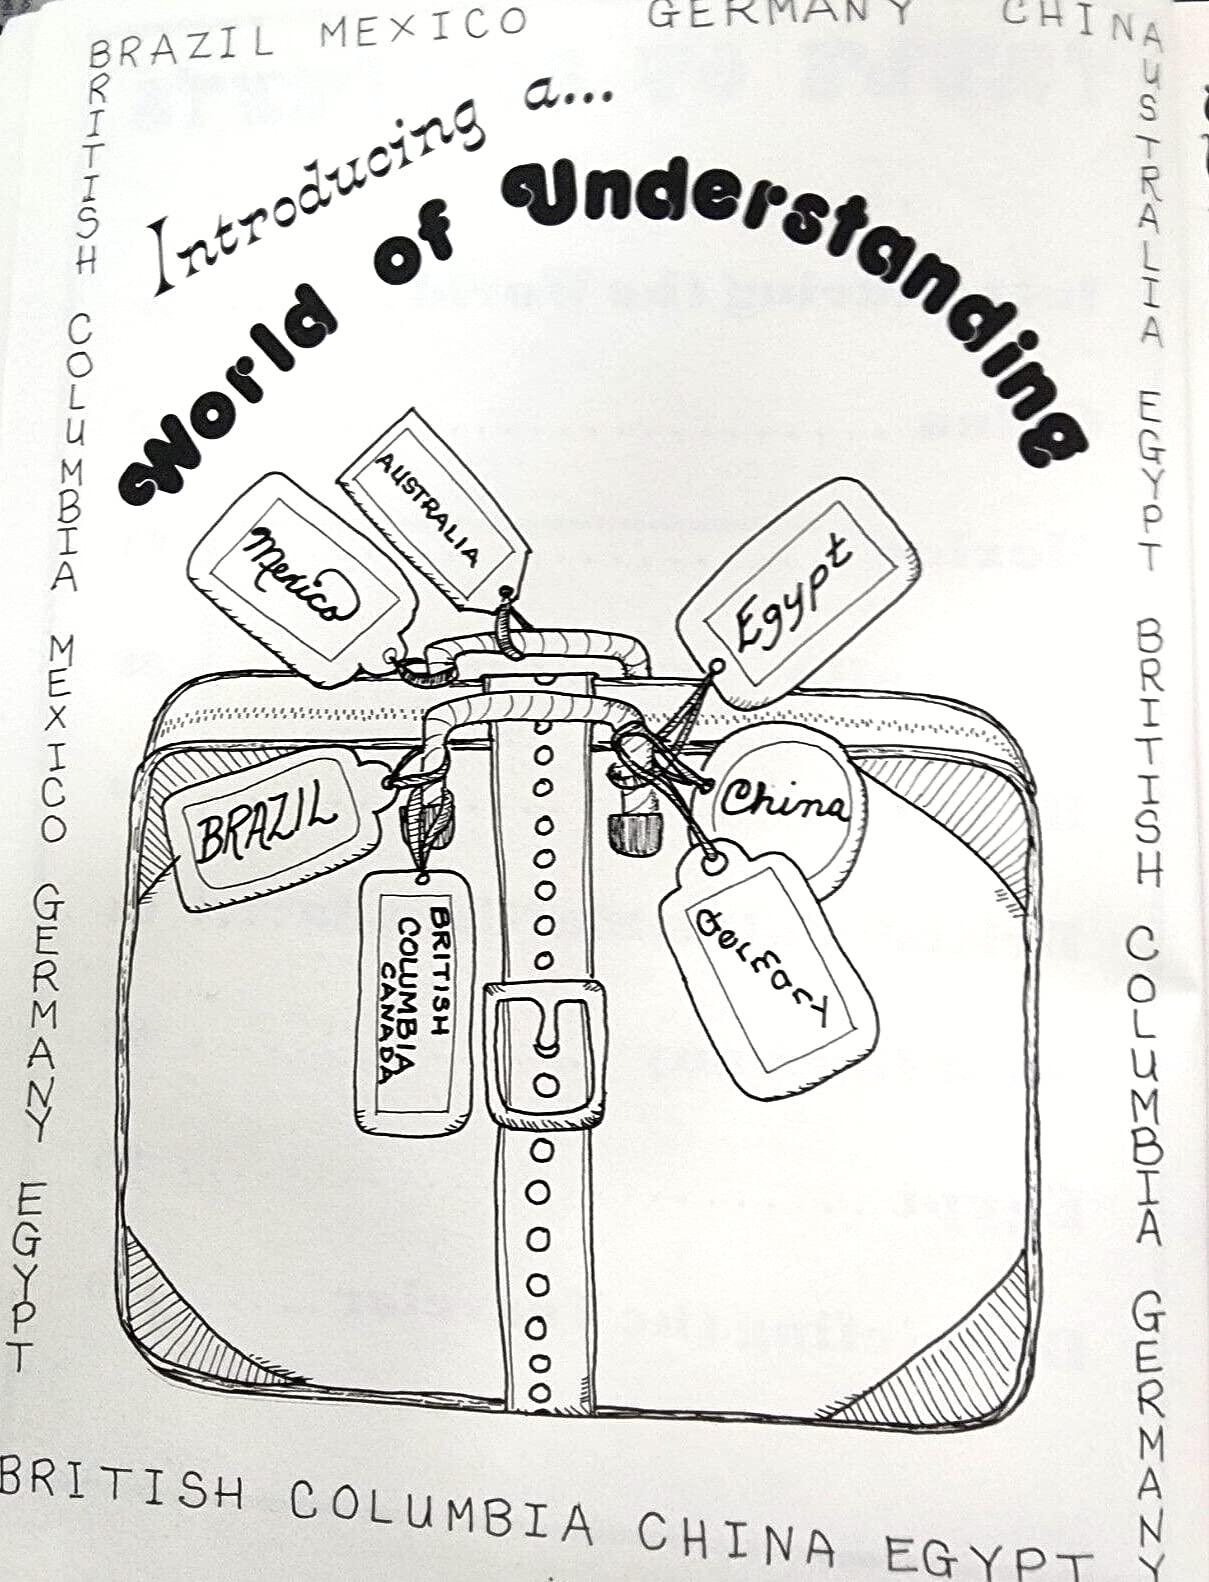 BRAZIL MEXICO GERMANY CHINA
BRITISH COLUMBIA MEXICO GERMANY EGYPT
AUSTRALIA EGYPT BRITISH COLUMBIA GERMANY
Introducing a...
World of Understanding
AUSTRALIA
Mexico
Egypt
BRAZIL
China
BRITISH
COLUMBIA
CANADA
Germany
BRITISH COLUMBIA CHINA EGYPT